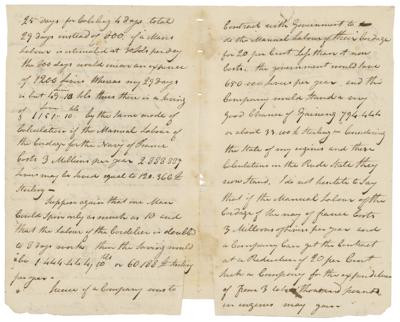 25 days for Cabeling 4 days total
29 days instead of 300, if a Mans
labour is estimated at 4 Sols per day
the 300 days would incur an expence
of 1200 livres Whereas my 29 days
is but 43-10 thus there is a saving
of 1151-10. by the same mode of
Calculation if the Manual Labour of
the Cordage for the Navy of France
Costs 3 Millions per year 2888889
livres may be saved equal to 120.360 £
Sterling —
Suppose again that one Man
Could Spin only as much as 10 and
that the Labour of the Cordelier is doubled
to 8 days work, then the Saving would
be 1.444.444 10 or 60188 £ Sterling
per year —
Hence if a Company was to
Contract with Government to
do the Manual Labour of their Cordage
for 20 per Cent less than it now
Costs. the government would save
650.000 livres per year and the
Company would Stand a very
Good Chance of Gaining 794.444
or about 33.000 £ Sterling — Considering
the State of my engines and these
Calculations in the Rude State they
now Stand, I do not hesitate to Say
that if the Manual Labour of the
Cordage of the navy of france Costs
3 Millions of livres per year and
a Company Can get the Contract
at a Reduction of 20 per Cent
such a Company for the expenditure
of from 3 to thousand pounds
in engines may gain